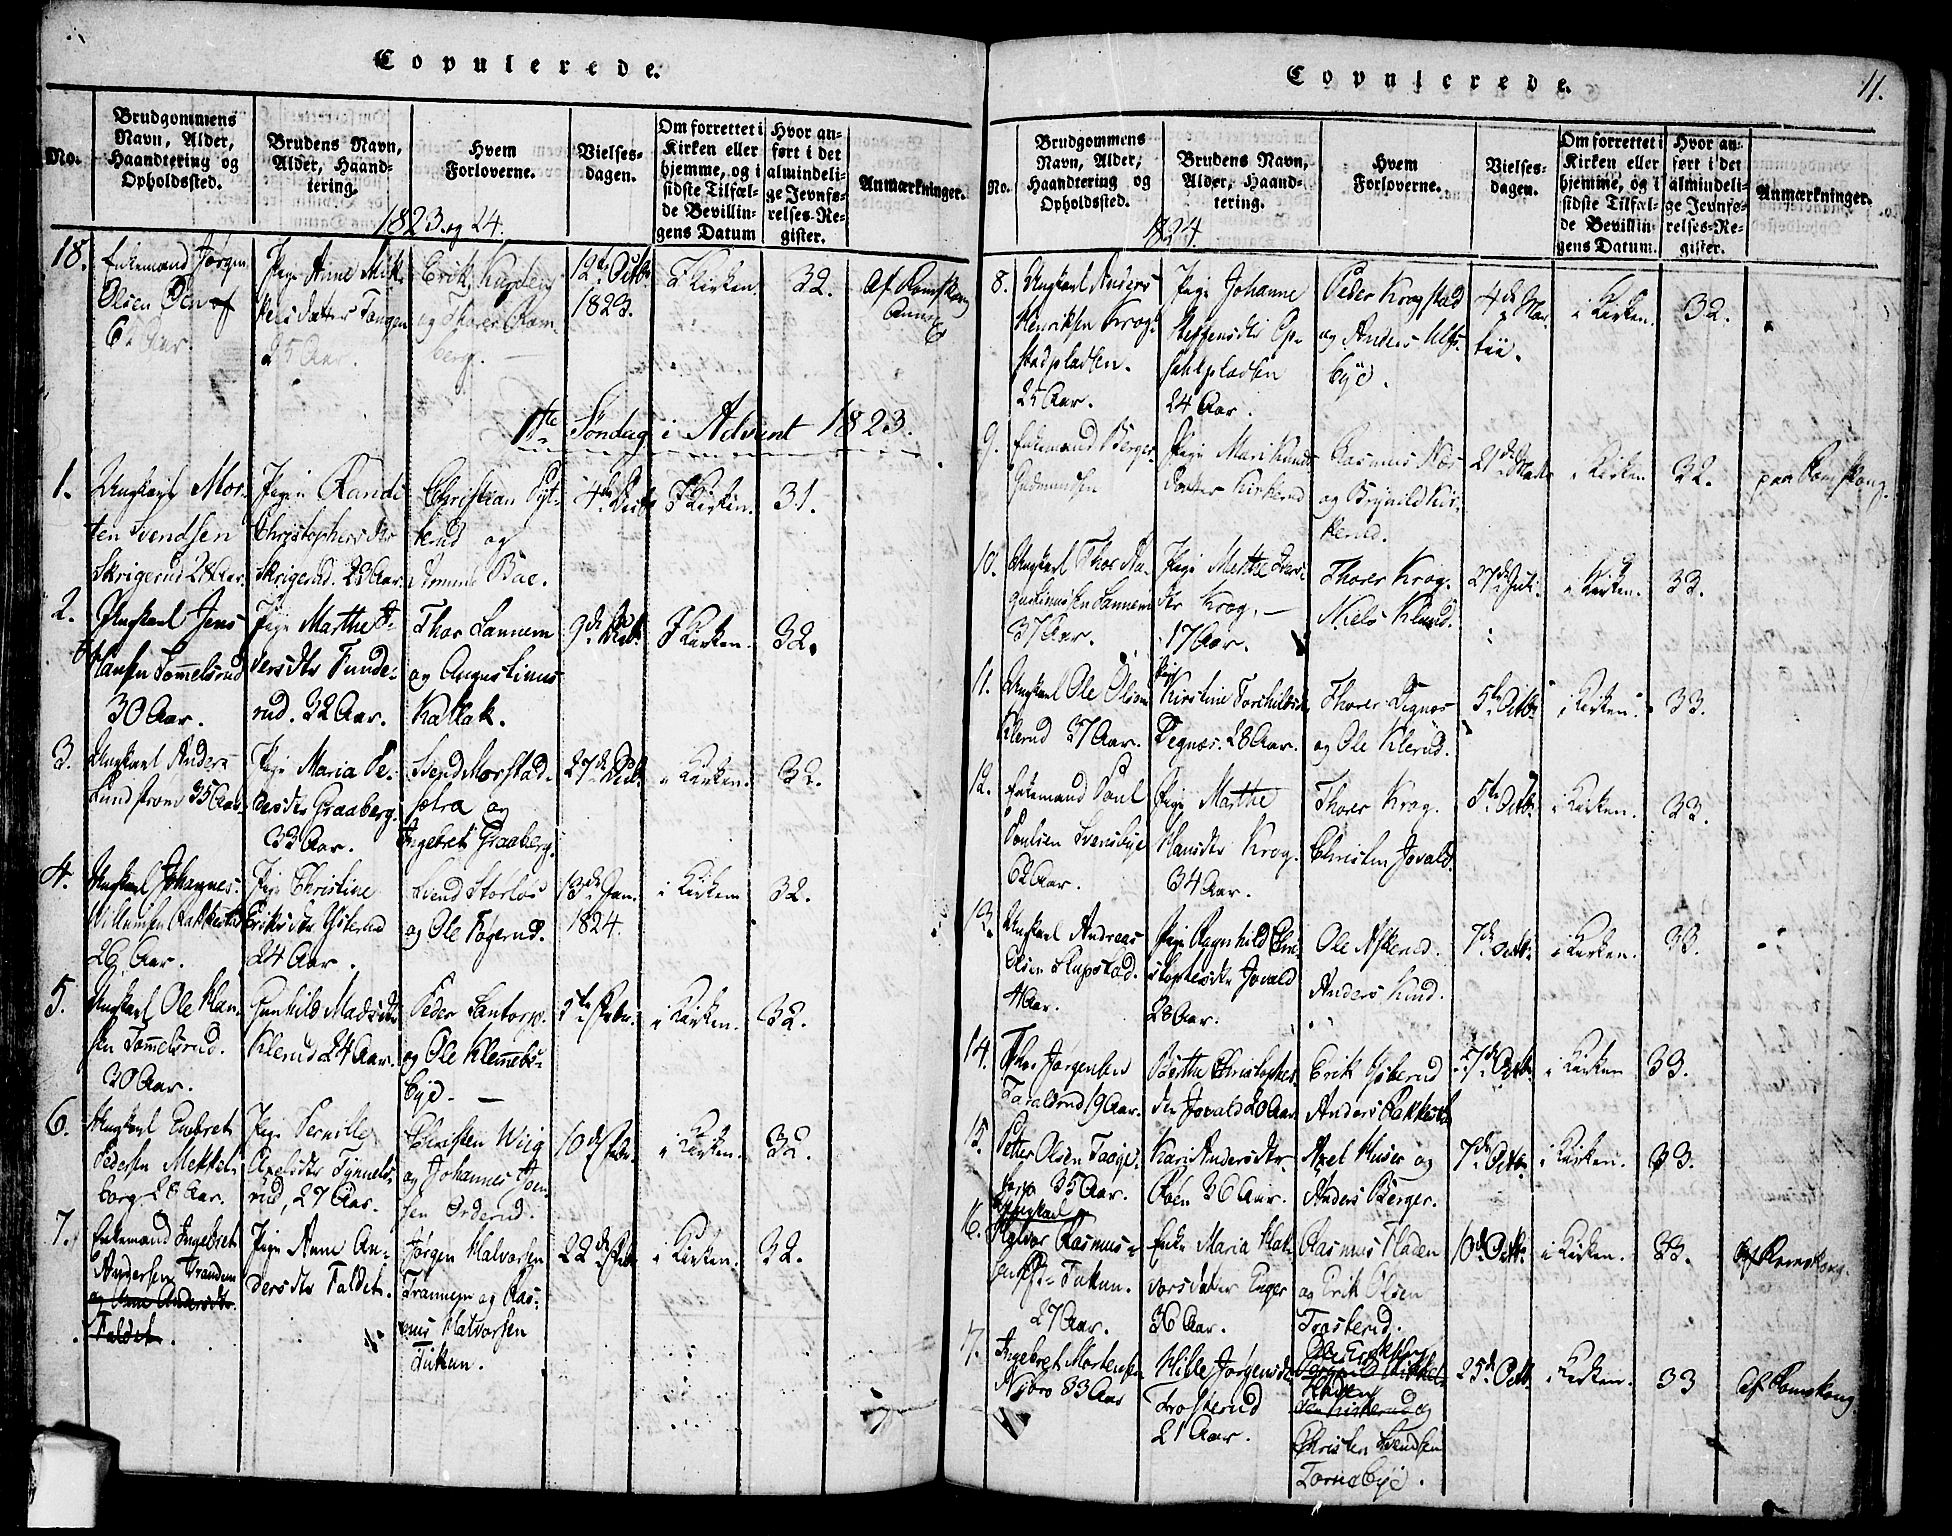 Copulerede.
No.
Brudgommens
Navn, Alder,
Haandtering og
Opholdssted.
Brudens Navn,
Alder, Haand-
tering.
Hvem
Forloverne.
Vielses-
dagen.
Om forrettet i
Kirken eller
hjemme, og i
sidste Tilfæl-
de Bevillin-
gens Datum
Hvor an-
ført i det
almindeli-
ge Jevnfø-
relses-Re-
gister.
Anmærkninger.
1823 og 24.
18.
Enkemand Jørgen
Olsen
Aar.
Pige Anne Mik-
kelsdatter Tangen
25 Aar.
Erik
og Thorer Ram-
berg.
12te Octb.
1823.
I Kirken
32.
Af Romskoug
Annex
1ste Søndag i Advent 1823.
1.
Ungkarl Mor-
ten Svendsen
Skrigerud 28 Aar.
Pige Randi
Christophersdtr
Skrigerud. 28 Aar.
Christian
og
Bae.
4de
I Kirken.
31.
2.
Ungkarl Jens
Hansen Tomelsrud
30 Aar.
Pige Marthe
Funde-
rud. 32 Aar.
Thor Lannem
og Augustinus
Kallak.
9de
I Kirken.
32.
3.
Ungkarl Anders
Lundstrøm 35 Aar.
Pige Maria Pe-
dersdtr Graaberg.
33 Aar.
Svend Morstad-
sætra og
Ingebret Graaberg.
27de
i Kirken.
32.
4.
Ungkarl Johannes
Willumsen Rakkestad
26 Aar.
Pige Christine
Eriksdtr Ysterud
24 Aar.
Svend Storløs
og Ole Fogerud.
13de Jan.
1824.
i Kirken
32.
5.
Ungkarl Ole Han-
sen Tomelsrud.
30 Aar.
Gunhild Madsdtr
Klerud 24 Aar.
Peder Santorp.
og Ole Klemets-
bye. —
5te Febr.
i Kirken.
32.
6.
Ungkarl Engbret
Pedersen Mekkel-
borg 28 Aar.
Pige Pernille
Axelsdtr Tynnels-
rud, 27 Aar.
Christen Wiig
og Johannes Jen-
sen Orderud.
10de Febr.
i Kirken.
32.
7.
Enkemand Ingebret
Andersen Trandem
og Anne Andersdtr
Taldet.
Pige Anne An-
dersdtr Taldet.
Jørgen Halvorsen
Trannem og Ras-
mus Halvorsen
Tukun.
22de Febr.
i Kirken.
32.
Copulerede.
11.
No.
Brudgommens
Navn, Alder,
Haandtering og
Opholdssted.
Brudens Navn,
Alder, Haand-
tering.
Hvem
Forloverne.
Vielses-
dagen.
Om forrettet i
Kirken eller
hjemme, og i
sidste Tilfæl-
de Bevillin-
gens Datum.
Hvor an-
ført i det
almindeli-
ge Jevnfø-
relses-Re-
gister.
Anmærkninger.
1824.
8.
Ungkarl Anders
Henriksen Krog-
stadpladsen.
25 Aar.
Pige Johanne
Steffensdtr Op-
sahlpladsen
24 Aar.
Peder Krogstad
og Anders Ulfs-
bye.
4de Mar-
tii.
i Kirken.
32.
9.
Enkemand Berger
Gudmundsen
Pige Mari Knuds-
datter Kirkerud
Rasmus Næs
og Brynild Kir-
kerud.
21de
i Kirken
32.
paa Romskoug.
10.
Ungkarl Thor Au-
gustinusen Lannem
37 Aar.
Pige Marthe Ivers-
dtr Krog. —
17 Aar.
Thorer Krog.
Niels Klund.
27de Juli
i Kirken.
33.
11.
Ungkarl Ole Olsen
Klerud 37 Aar.
Pige
Kirstine Torchilsdtr
Degnæs. 28 Aar.
Thorer Degnæs
og Ole Klerud.
5te Octb.
i Kirken.
33.
12.
Enkemand Poul
Poulsen Svensbye
62 Aar.
Pige Marthe
Hansdtr Krog.
34 Aar.
Thorer Krog.
Christen Jovald.
5te Octb.
i Kirken.
33.
13.
Ungkarl Andreas
Olsen Slupstad.
Aar.
Pige Ragnhild Chri-
stophersdtr Jovald
28 Aar.
Ole Askerud.
Anders Kind.
7de Octb.
i Kirken.
33.
14.
Thor Jørgensen
Taraldrud 19 Aar.
Berthe Christophers-
dtr Jovald 20 Aar.
Erik Ysterud
Anders Rakkestad
7de Octb.
i Kirken
33.
15.
Petter Olsen Taage-
35 Aar.
Kari Andersdtr.
Bøen 36 Aar.
Axel Huser og
Anders Berger.
7de Octb.
i Kirken.
33.
16.
Ungkarl
Halvor Rasmus-
sen Tukun.
27 Aar.
Enke Maria Hal-
vorsdatter Enger
36 Aar.
Rasmus Fladen
og Erik Olsen
Trosterud.
10de Octb.
i Kirken.
33.
Af Romskoug.
17.
Ingebret Mortensen
Nybro 33 Aar
Hille Jørgensdtr
Trosterud
21 Aar.
Ole Eriksen
og
Christen Svendsen
Tornebye.
25de Octb.
i Kirken.
33
Af Romskoug